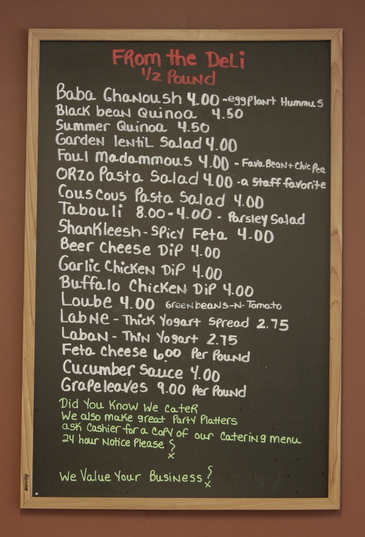 From the Deli
1/2 Pound
Baba Ghanoush 4.00 - eggplant Hummus
Black bean Quinoa 4.50
Summer Quinoa 4.50
Garden lentil Salad 4.00
Foul Madammous 4.00 - Fava Bean + Chic Pea
Orzo Pasta Salad 4.00 - a Staff favorite
Couscous Pasta Salad 4.00
Tabouli 8.00 - 4.00 - Parsley Salad
Shankleesh - Spicy Feta 4.00
Beer Cheese Dip 4.00
Garlic Chicken Dip 4.00
Buffalo Chicken Dip 4.00
Loube 4.00 Greenbeans-N-Tomato
Labne - Thick Yogart Spread 2.75
Laban - Thin Yogart 2.75
Feta Cheese 6.00 Per Pound
Cucumber Sauce 4.00
Grapeleaves 9.00 Per Pound
Did You Know We Cater
We also make great Party Platters
ask Cashier for a Copy of our Catering menu
24 hour Notice Please
We Value Your Business